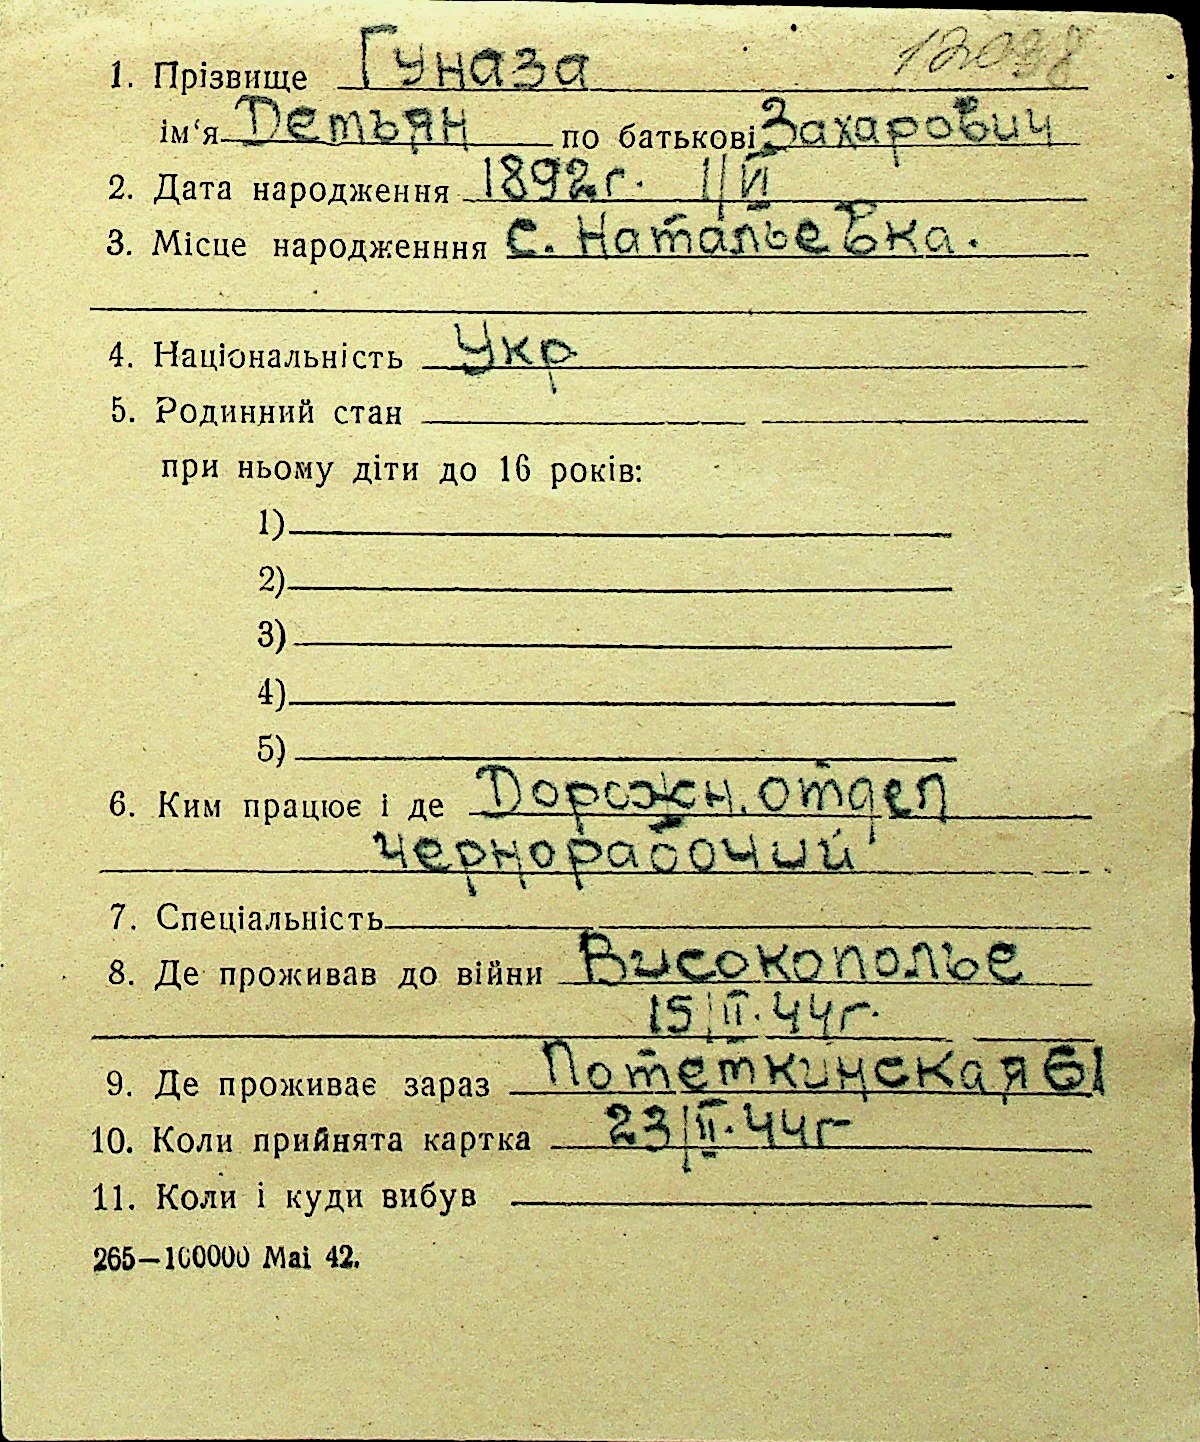 12098
1. Прізвище Гуназа
ім‘я Детьян по батькові Захарович
2. Дата народження 1892г. 1/II
3. Місце народженння с. Натальевка.
4. Національність Укр
5. Родинний стан
при ньому діти до 16 років:
1)
2)
3)
4)
5)
6. Ким працює і де Дорожн. отдел
чернорабочий
7. Спеціальність
8. Де проживав до війни Високополье
15/II. 44г.
9. Де проживає зараз Потеткинская 61
10. Коли прийнята картка 23/II. 44г
11. Коли і куди вибув
265—100000 Mai 42.